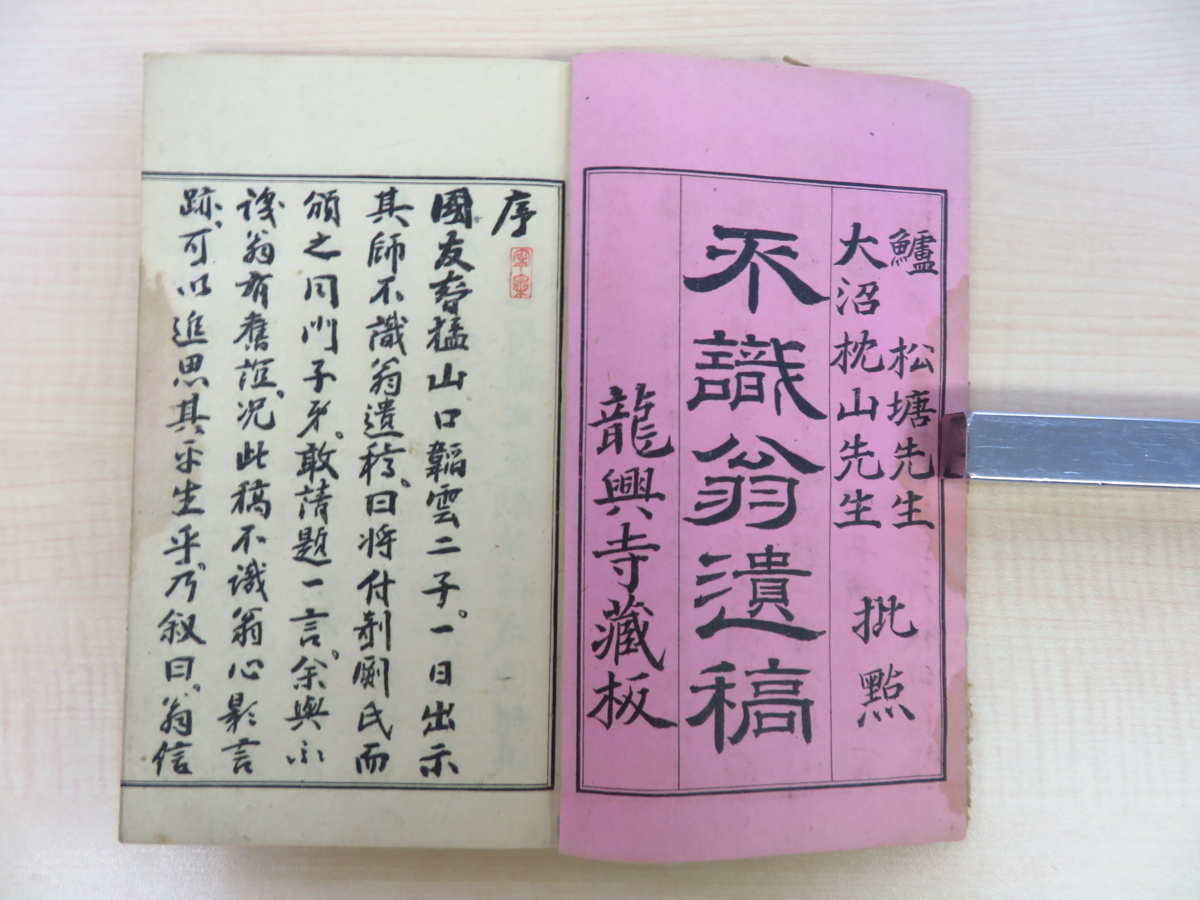 鱸 松塘先生
大沼枕山先生
批點
不識翁遺稿
龍興寺藏板
序
國友春橲山口韜雲二子。一日出示
其師不識翁遺稿。曰將付剞劂氏而
頒之同門子弟。敢請題一言。余與不
識翁有舊誼。況此稿不識翁心影言
跡。可以追思其平生乎。乃叙曰。翁信